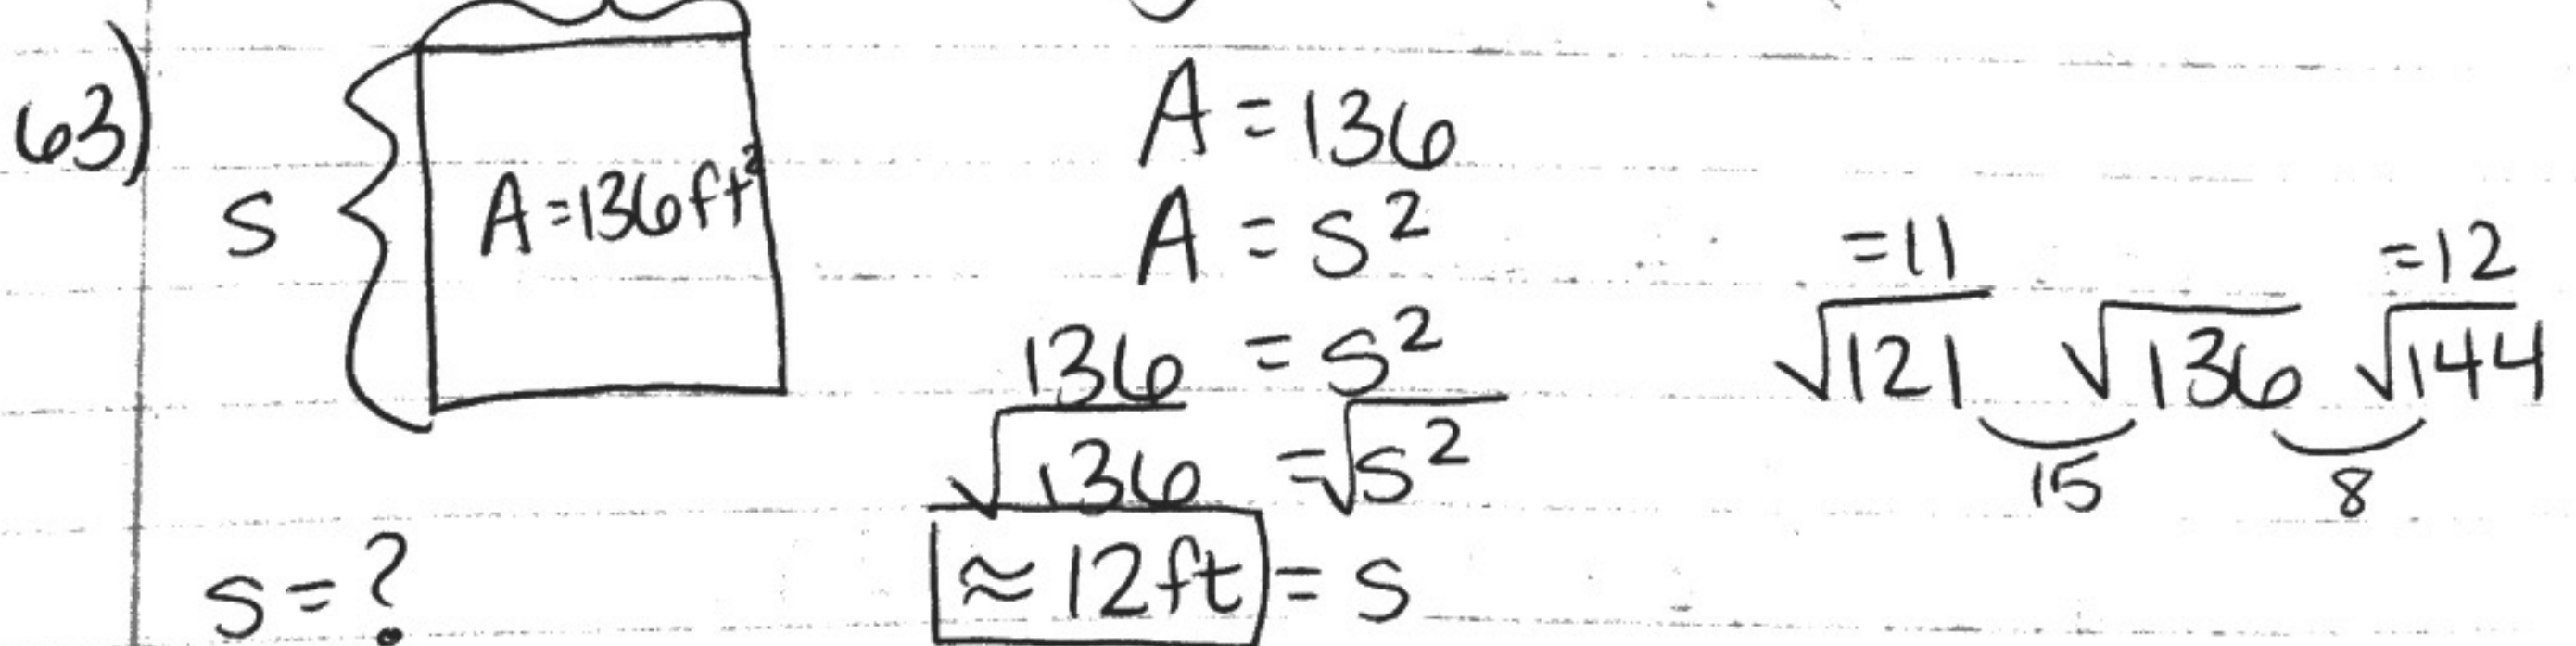 63)
S
A=136ft²
s=?
A=136
A=s²
136=s²
√136=√s²
≈12ft=s
=11 =12
√121 √136 √144
15 8